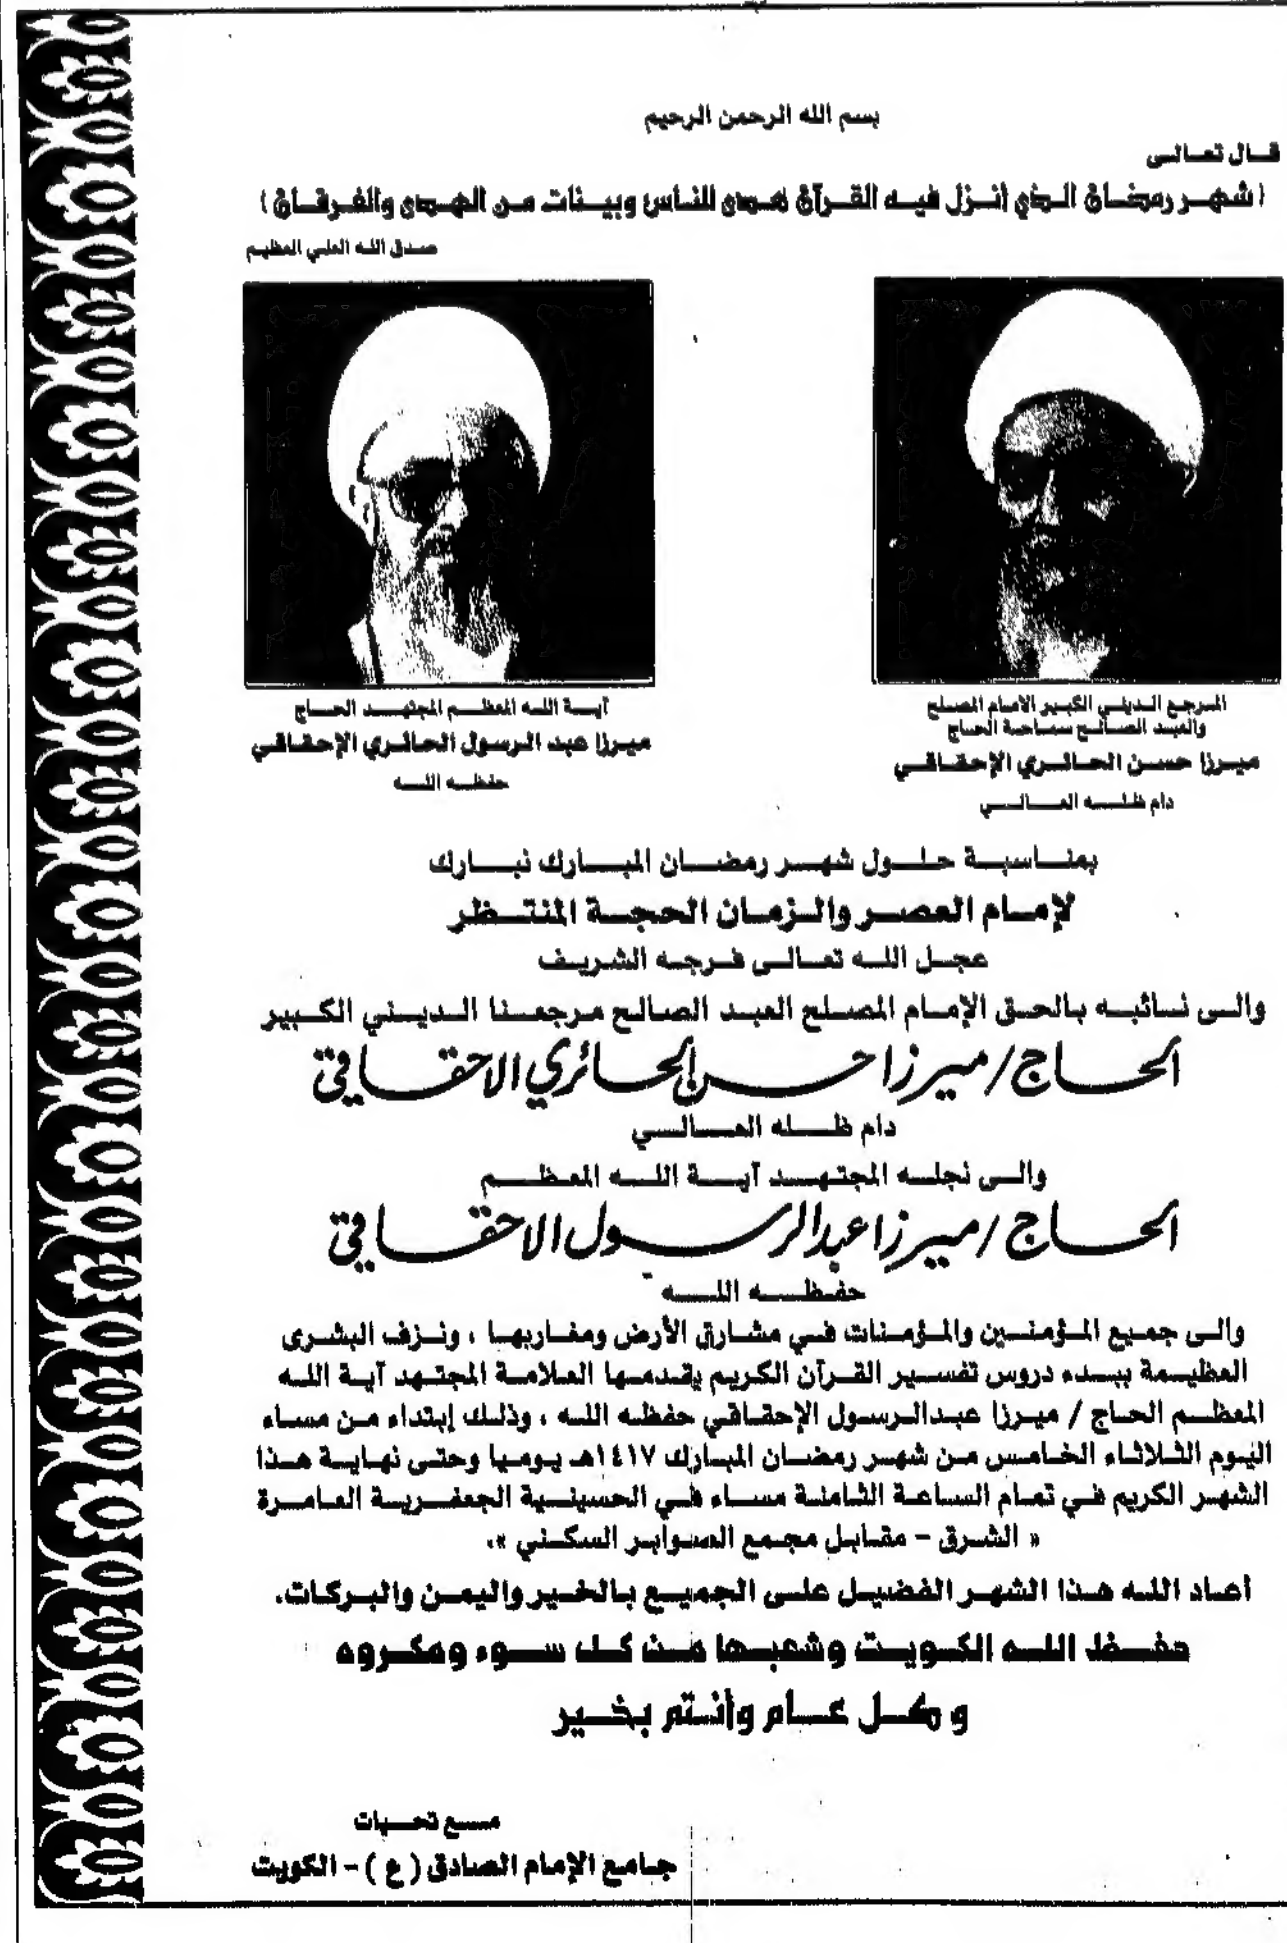 بسم الله الرحمن الرحيم
قال تعالى
( شهر رمضان الذي أنزل فيه القرآن هدى للناس وبينات من الهدى والفرقان )
صدق الله العلي العظيم
المرجع الديني الكبير الامام المصلح
والعبد الصالح سماحة الحاج
ميرزا حسن الحائري الإحقاقي
دام ظله العالي
آية الله المعظم المجتهد الحاج
ميرزا عبد الرسول الحائري الإحقاقي
حفظه الله
بمناسبة حلول شهر رمضان المبارك نبارك
لإمام العصر والزمان الحجة المنتظر
عجل الله تعالى فرجه الشريف
والى نائبه بالحق الإمام المصلح العبد الصالح مرجعنا الديني الكبير
الحاج / ميرزا حسن الحائري الاحقاقي
دام ظله العالي
والى نجله المجتهد آية الله المعظم
الحاج / ميرزا عبدالرسول الاحقاقي
حفظه الله
والى جميع المؤمنين والمؤمنات في مشارق الأرض ومغاربها ، ونزف البشرى
العظيمة ببدء دروس تفسير القرآن الكريم يقدمها العلامة المجتهد آية الله
المعظم الحاج / ميرزا عبدالرسول الإحقاقي حفظه الله ، وذلك إبتداء من مساء
اليوم الثلاثاء الخامس من شهر رمضان المبارك ١٤١٧هـ يوميا وحتى نهاية هذا
الشهر الكريم في تمام الساعة الثامنة مساء في الحسينية الجعفرية العامرة
« الشرق - مقابل مجمع الصوابر السكني ».
أعاد الله هذا الشهر الفضيل على الجميع بالخير واليمن والبركات.
حفظ الله الكويت وشعبها من كل سوء ومكروه
وكل عام وأنتم بخير
مع تحيات
جامع الإمام الصادق ( ع ) - الكويت